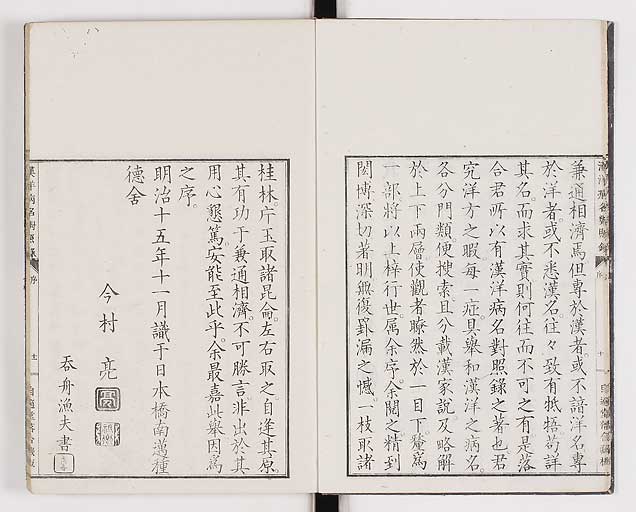 兼通相濟焉但專於漢者或不諳洋名專
於洋者或不悉漢名往々致有牴牾苟詳
其名而求其實則何往而不可之有是落
合君所以有漢洋病名對照錄之著也君
究洋方之暇每一症具舉和漢洋之病名
各分門類便搜索且分載漢家說及略解
於上下兩層使觀者瞭然於一目下釐爲
部將以上梓行世属余序余閱之精到
閎博深切著明無復罫漏之憾一枝取諸
桂林片玉取諸昆侖左右取之自逢其原
其有功于兼通相濟不可勝言非出於其
用心懇篤安能至此乎余最嘉此舉因爲
之序
明治十五年十一月識于日本橋南邁種
德舍
今村亮
吞舟漁夫書